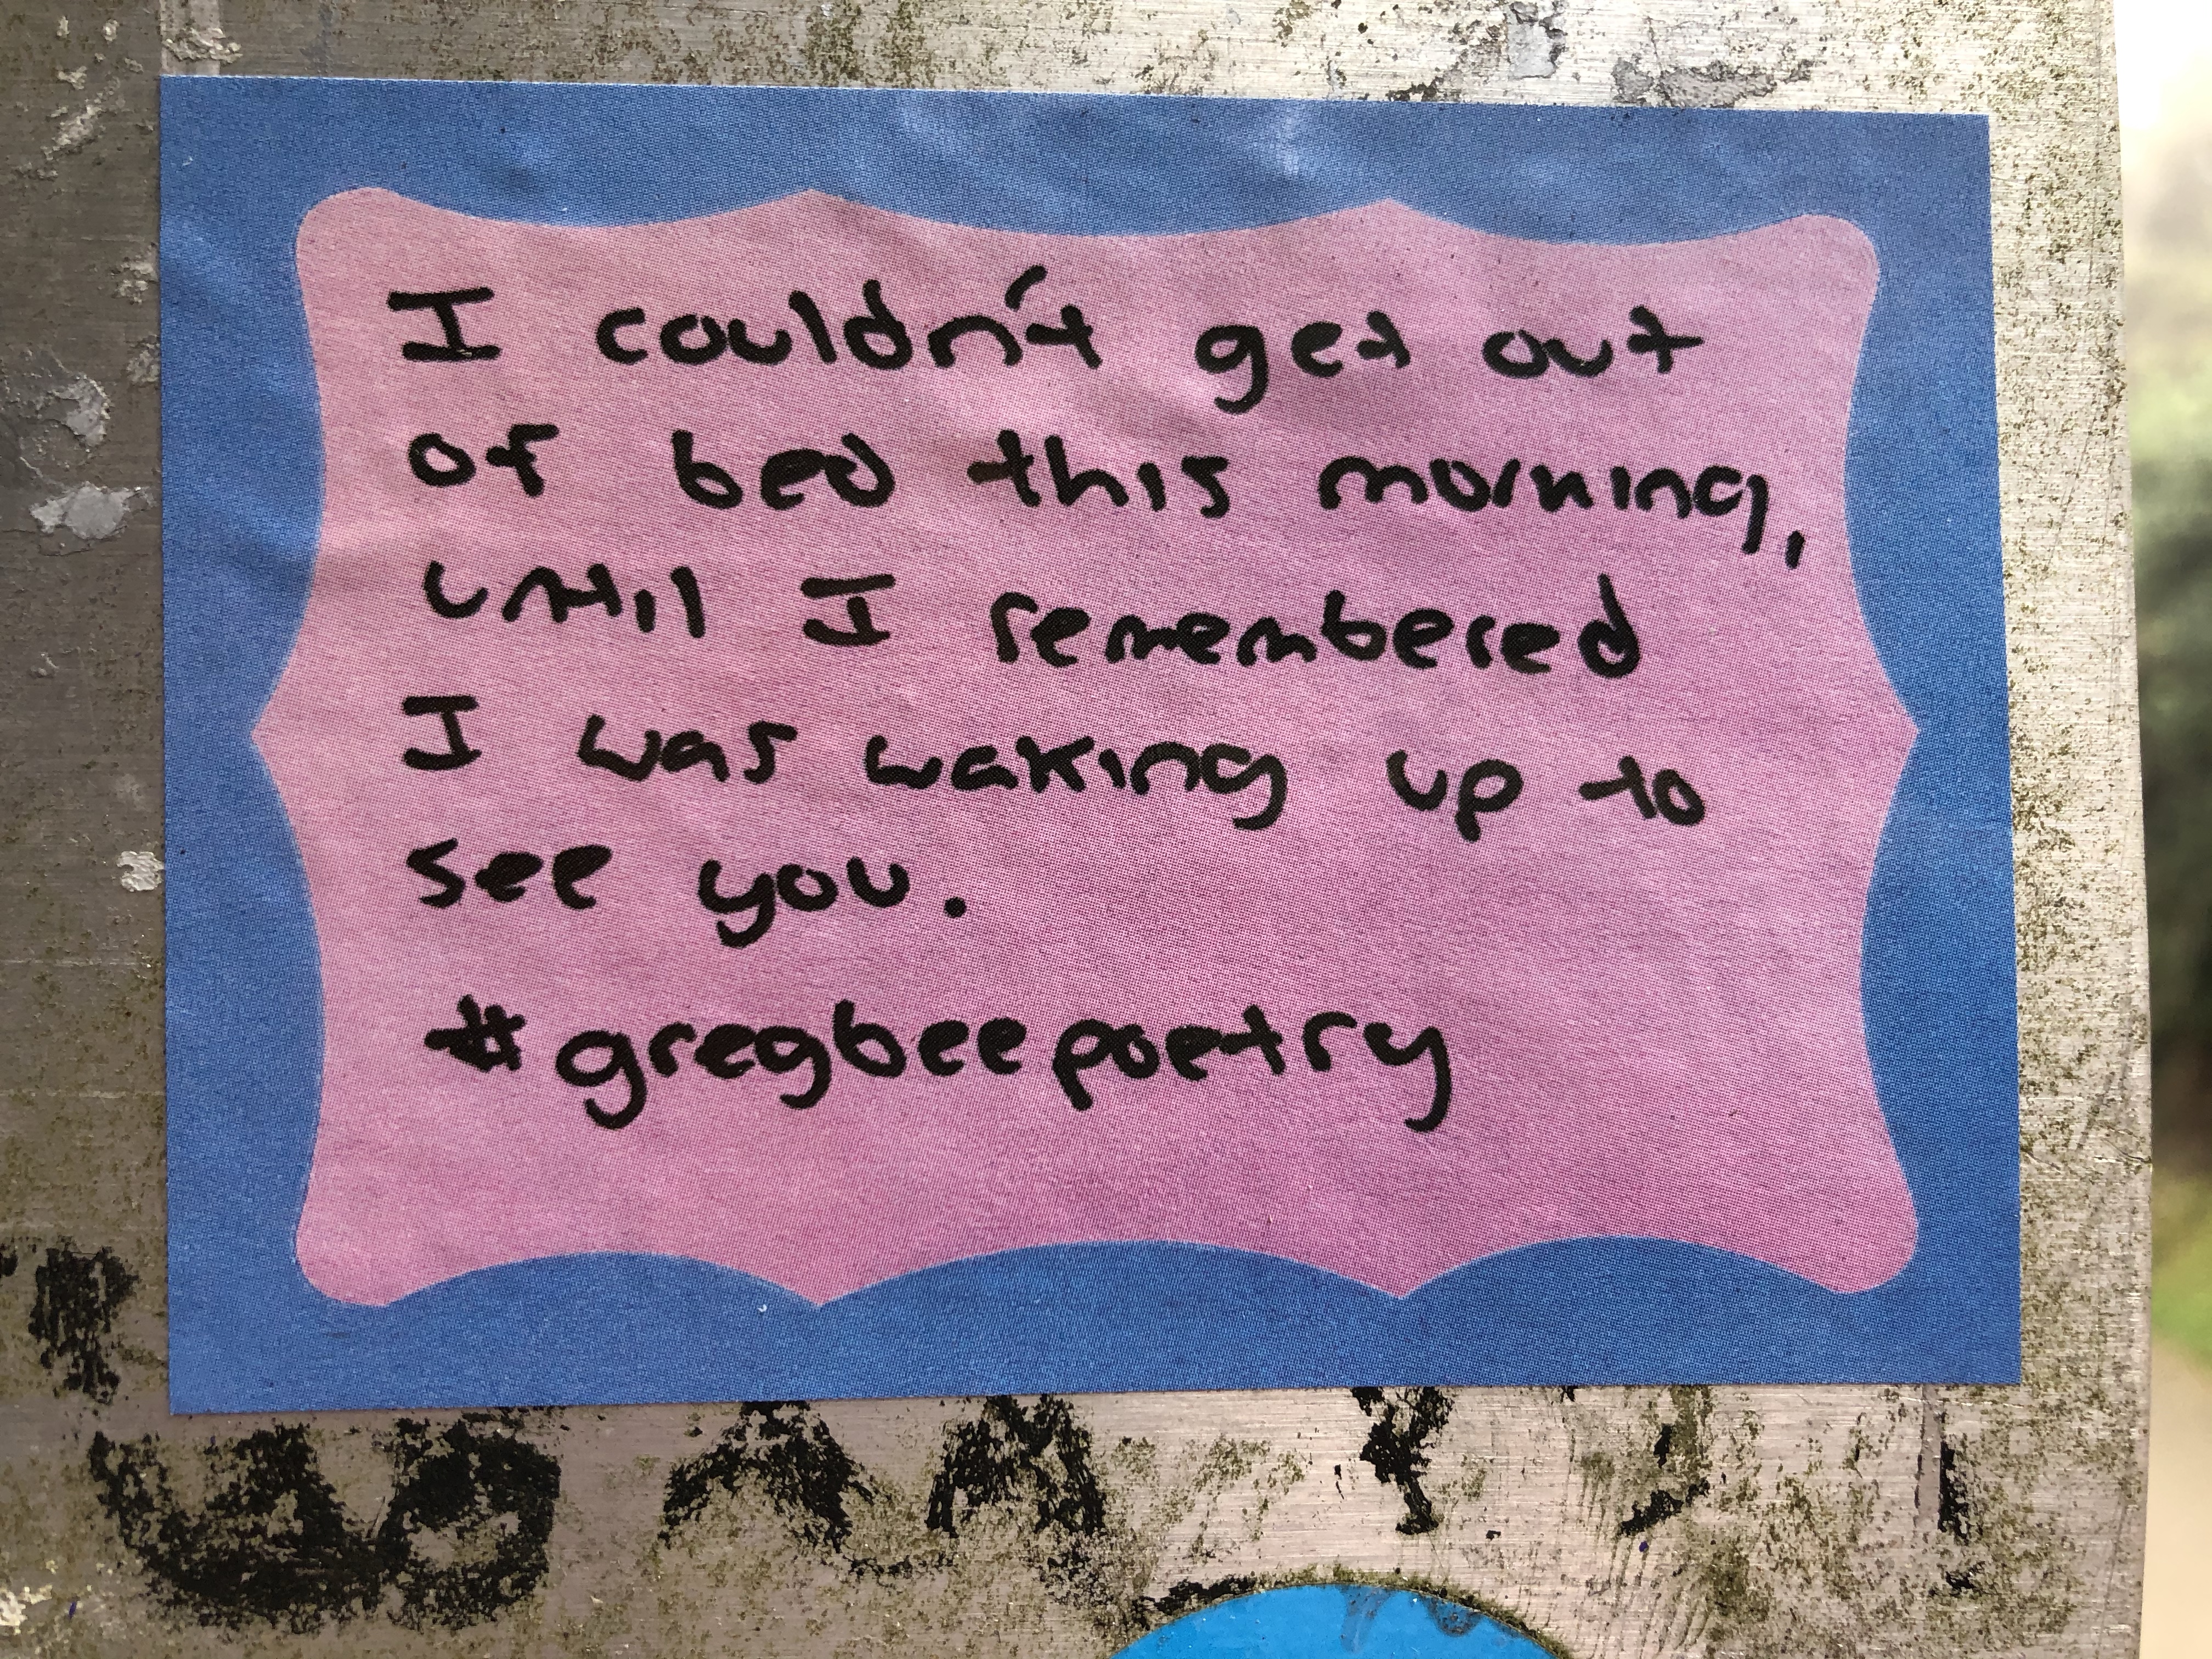 I couldn't get out
of bed this morning,
until I remembered
I was waking up to
see you.
#gregbeepoetry